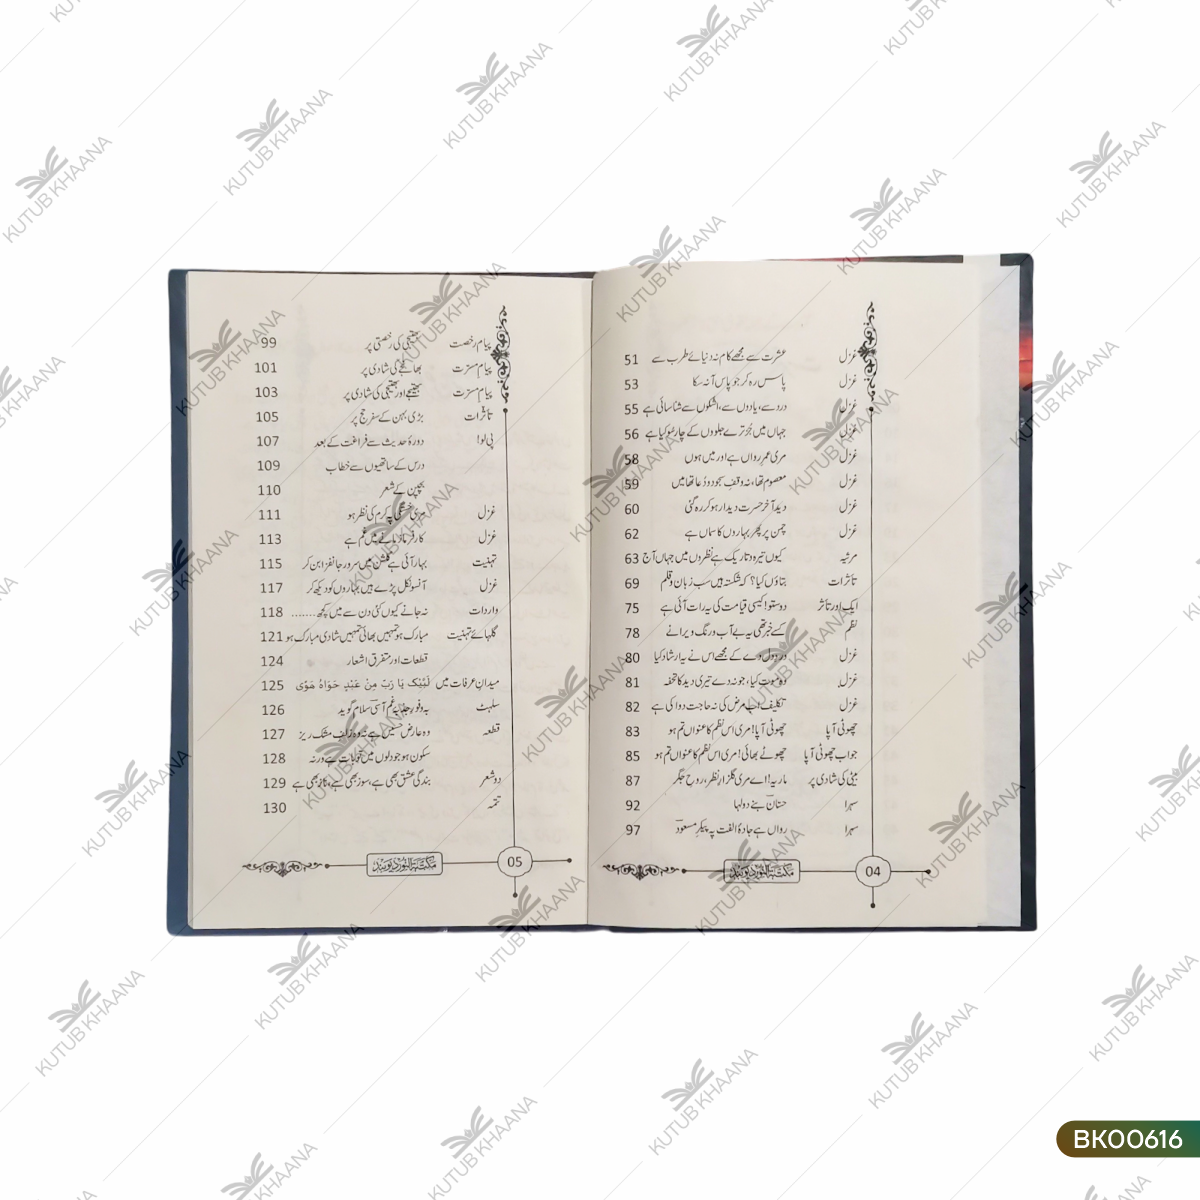 غزل عشرت سے مجھے کام نہ دنیائے طرب سے 51
غزل پاس رہ کر جو پاس آنہ سکا 53
غزل درد سے، یادوں سے، اشکوں سے شناسائی ہے 55
غزل جہاں میں جز ترے جلووں کے چار سو کیا ہے 56
غزل مری عمرِ رواں ہے اور میں ہوں 58
غزل معصوم تھا، نہ وقفِ سجود و دُعا تھا میں 59
غزل دید آخر حسرت دیدار ہوکر رہ گئی 60
غزل چمن پر پھر بہاروں کا سماں ہے 62
مرثیہ کیوں تیرہ وتاریک ہے نظروں میں جہاں آج 63
تأثرات بتاؤں کیا؟ کہ شکستہ ہیں سب زبان وقلم 69
ایک اور تأثر دوستو! کیسی قیامت کی یہ رات آئی ہے 75
نظم کسے خبر تھی یہ بے آب ورنگ ویرانے 78
غزل درد دل دے کے مجھے اس نے یہ ارشاد کیا 80
غزل وہ موت کیا، جو نہ دے تیری دید کا تحفہ 81
غزل تکلیف مرض کی نہ حاجت دوا کی ہے 82
چھوٹی آپا چھوٹی آپا! مری اس نظم کا عنواں تم ہو 83
جواب چھوٹی آپا چھوٹے بھائی! مری اس نظم کا عنواں تم ہو 85
بیٹی کی شادی پر ماریہ! اے مری گلزارِ نظر، روحِ جگر 87
سہرا حسّان بنے دولہا 92
سہرا رواں ہے جادۂ الفت پہ پیکرِ مسعود 97
مکتبۃ النور دیوبند 04
پیام رخصت بھتیجی کی رخصتی پر 99
پیام مسرّت بھانجے کی شادی پر 101
پیام مسرّت بھتیجے اور بھتیجی کی شادی پر 103
تأثرات بڑی بہن کے سفر حج پر 105
پی لو! دورۂ حدیث سے فراغت کے بعد 107
درس کے ساتھیوں سے خطاب 109
بچپن کے شعر 110
غزل مری خستگی پہ کرم کی نظر ہو 111
غزل کارفرما زمانے میں غم ہے 113
تہنیت بہار آئی ہے گلشن میں سرور جانفزا بن کر 115
غزل آنسو نکل پڑے ہیں بہاروں کو دیکھ کر 117
واردات نہ جانے کیوں کئی دن سے میں کچھ ........ 118
گلہائے تہنیت مبارک ہو تمہیں بھائی تمہیں شادی مبارک ہو 121
قطعات اور متفرق اشعار 124
میدانِ عرفات میں لَبَّیْکَ یَا رَبِّ مِنْ عَبْدٍ حَوَاہُ هَوًی 125
سلہٹ بہ وفورِ غم آسی سلام گوید 126
قطعہ وہ عارضِ حسیں ہے نہ وہ زلفِ مشک ریز 127
سکون ہو جو دلوں میں تو ہے ورنہ 128
دو شعر بندگی عشق بھی ہے، سوز بھی ہے، ساز بھی ہے 129
تتمہ 130
مکتبۃ النور دیوبند 05
KUTUB KHAANA
BK00616